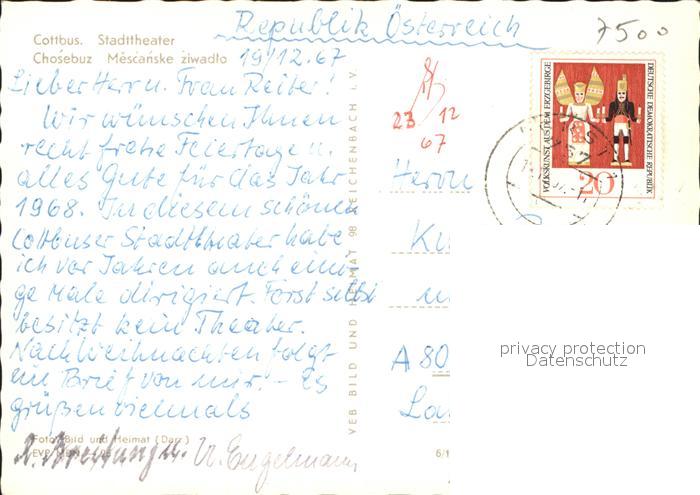 Republik Österreich
7500
Cottbus. Stadttheater
Chośebuz Měsćańske źiwadło
19/12.67
Lieber Herr u. Frau Reiter!
Wir wünschen Ihnen
recht frohe Feiertage u.
alles Gute für das Jahr
1968. In diesem schönen
Cottbuser Stadttheater habe
ich vor Jahren auch eini-
ge Male dirigiert. Forst selbst
besitzt kein Theater.
Nach Weihnachten folgt
ein Brief von mir. – Es
grüßen vielmals
Foto: Bild und Heimat (Darr)
VEB BILD UND HEIMAT 98 REICHENBACH i. V.
23 12
67
VOLKSKUNST AUS DEM ERZGEBIRGE
DEUTSCHE DEMOKRATISCHE REPUBLIK
20
Herrn
Ku
A 80
6/1
privacy protection
Datenschutz